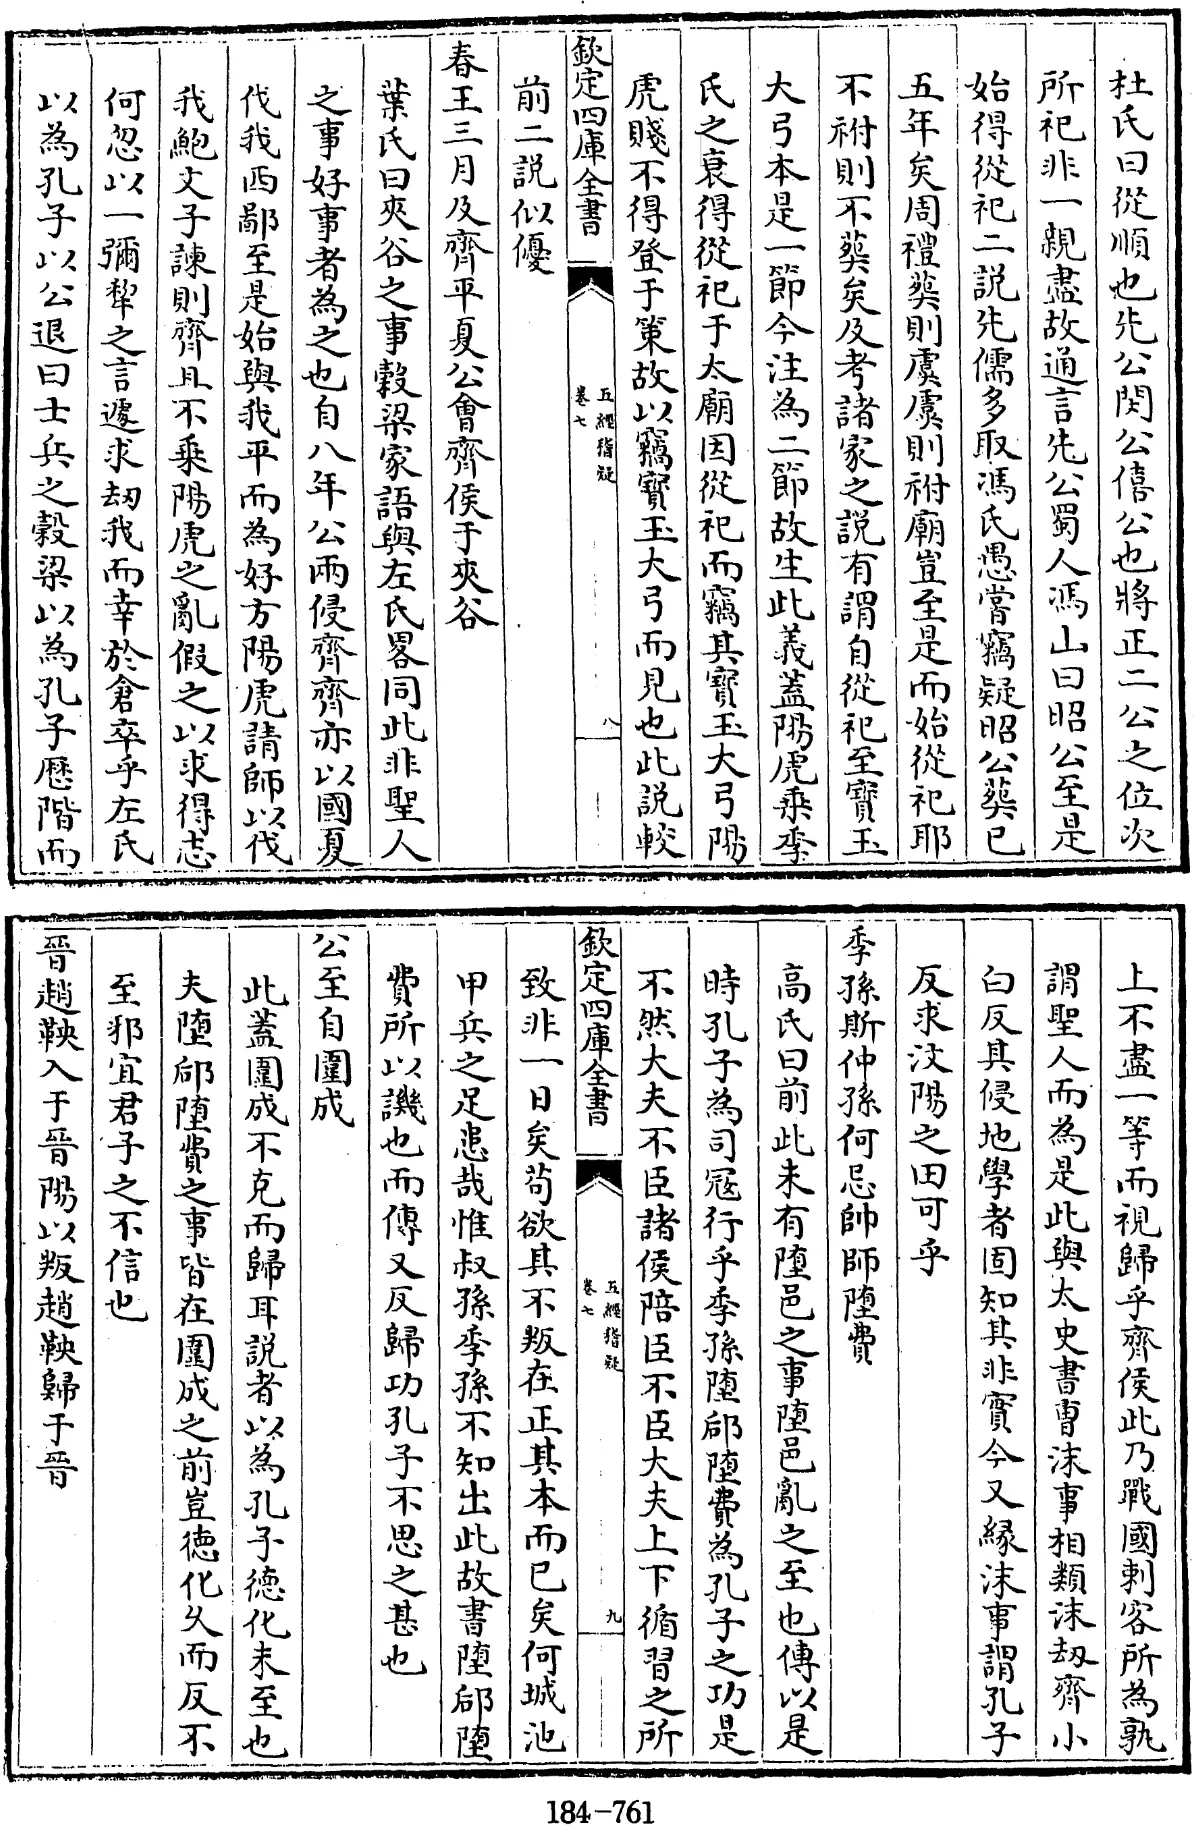 杜氏曰從順也先公閔公僖公也將正二公之位次
所祀非一親盡故通言先公蜀人馮山曰昭公至是
始得從祀二説先儒多取馮氏愚嘗竊疑昭公葬已
五年矣周禮葬則虞虞則祔廟豈至是而始從祀耶
不祔則不葬矣及考諸家之説有謂自從祀至寳玉
大弓本是一節今注為二節故生此義蓋陽虎乘季
氏之衰得從祀于太廟因從祀而竊其寳玉大弓陽
虎賤不得登于策故以竊寳玉大弓而見也此説較
欽定四庫全書
五經稽疑
卷七
八
前二説似優
春王三月及齊平夏公會齊侯于夾谷
葉氏曰夾谷之事穀梁家語與左氏畧同此非聖人
之事好事者為之也自八年公兩侵齊齊亦以國夏
伐我西鄙至是始與我平而為好方陽虎請師以伐
我鮑文子諫則齊且不乘陽虎之亂假之以求得志
何忽以一彌犂之言遽求刼我而幸於倉卒乎左氏
以為孔子以公退曰士兵之穀梁以為孔子歴階而
上不盡一等而視歸乎齊侯此乃戰國刺客所為孰
謂聖人而為是此與太史書曹沬事相類沬刼齊小
白反其侵地學者固知其非實今又緣沬事謂孔子
反求汶陽之田可乎
季孫斯仲孫何忌帥師墮費
高氏曰前此未有墮邑之事墮邑亂之至也傳以是
時孔子為司冦行乎季孫墮郈墮費為孔子之功是
不然大夫不臣諸侯陪臣不臣大夫上下循習之所
欽定四庫全書
五經稽疑
卷七
九
致非一日矣苟欲其不叛在正其本而已矣何城池
甲兵之足患哉惟叔孫季孫不知出此故書墮郈墮
費所以譏也而傳又反歸功孔子不思之甚也
公至自圍成
此蓋圍成不克而歸耳説者以為孔子德化未至也
夫墮郈墮費之事皆在圍成之前豈德化久而反不
至邪宜君子之不信也
晉趙鞅入于晉陽以叛趙鞅歸于晉
184-761